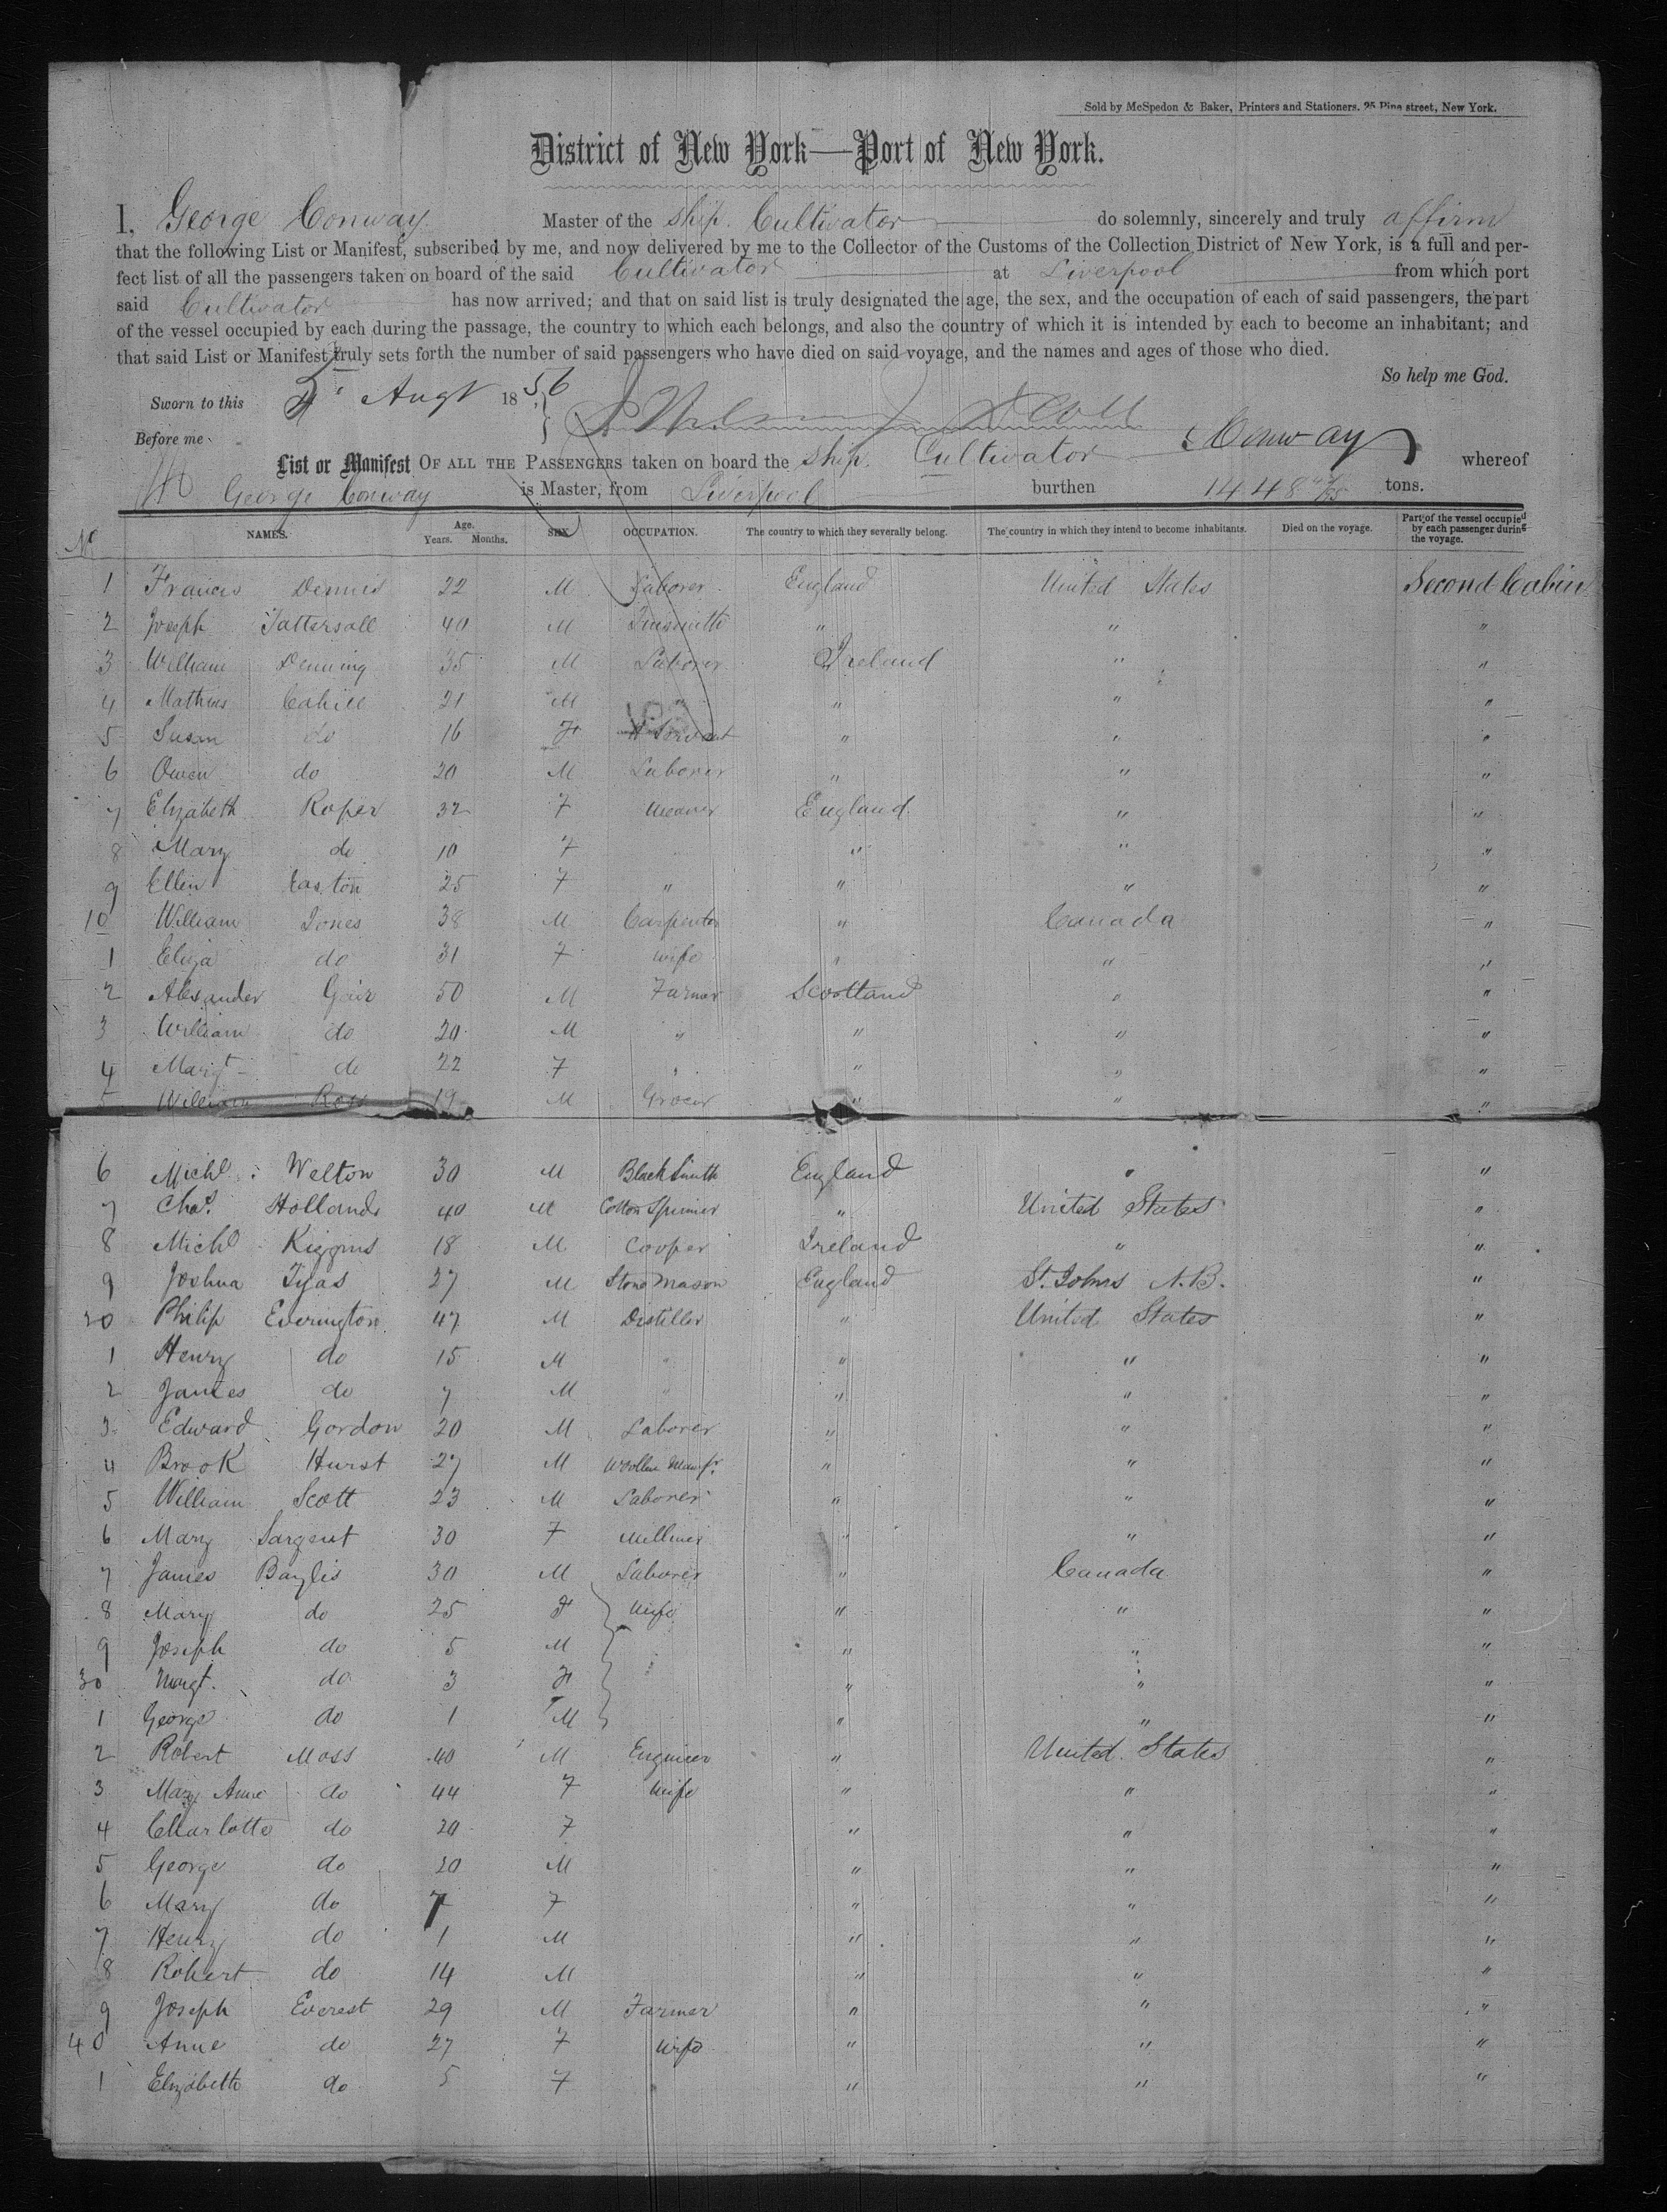 Sold by McSpedon & Baker, Printers and Stationers. 25 Pine street, New York.
District of New York—Port of New York.
I, George Conway Master of the ship Cultivator do solemnly, sincerely and truly affirm
that the following List or Manifest, subscribed by me, and now delivered by me to the Collector of the Customs of the Collection District of New York, is a full and per-
fect list of all the passengers taken on board of the said Cultivator at Liverpool from which port
said Cultivator has now arrived; and that on said list is truly designated the age, the sex, and the occupation of each of said passengers, the part
of the vessel occupied by each during the passage, the country to which each belongs, and also the country of which it is intended by each to become an inhabitant; and
that said List or Manifest truly sets forth the number of said passengers who have died on said voyage, and the names and ages of those who died.
So help me God.
Sworn to this Augt 1856
Before me
List or Manifest OF ALL THE PASSENGERS taken on board the ship Cultivator Conway whereof
George Conway is Master, from Liverpool burthen 1448 tons.
No NAMES. Age. Years. Months. SEX OCCUPATION. The country to which they severally belong. The country in which they intend to become inhabitants. Died on the voyage. Part of the vessel occupied by each passenger during the voyage.
1 Francis Dennis 22 M Laborer England United States Second Cabin
2 Joseph Tattersall 40 M Tinsmith " " "
3 William Denning 35 M Laborer Ireland " "
4 Mathew Cahill 21 M " " " "
5 Susan do 16 F Servant " " "
6 Owen do 20 M Laborer " " "
7 Elizabeth Roper 32 F Weaver England " "
8 Mary do 10 F " " "
9 Ellen Easton 25 F " " " "
10 William Jones 38 M Carpenter " Canada "
1 Eliza do 31 F Wife " " "
2 Alexander Gair 50 M Farmer Scotland " "
3 William do 20 M " " " "
4 Margt do 22 F " " " "
5 William Ross 19 M Grocer " " "
6 Michl Welton 30 M Black Smith England " "
7 Chas. Hollands 40 M Cotton Spinner " United States "
8 Michl Kiggins 18 M Cooper Ireland " "
9 Joshua Tyas 27 M Stone Mason England St. Johns N.B. "
20 Philip Everington 47 M Distiller " United States "
1 Henry do 15 M " " " "
2 James do 7 M " " " "
3 Edward Gordon 20 M Laborer " " "
4 Brook Hurst 27 M Woollen Manfr. " " "
5 William Scott 23 M Laborer " " "
6 Mary Sargent 30 F Milliner " " "
7 James Baylis 30 M Laborer " Canada "
8 Mary do 25 F Wife " " "
9 Joseph do 5 M " " "
30 Margt. do 3 F " " "
1 George do 1 M " " "
2 Robert Moss 40 M Engineer " United States "
3 Mary Anne do 44 F Wife " " "
4 Charlotte do 20 F " " "
5 George do 20 M " " "
6 Mary do 7 F " " "
7 Henry do 1 M " " "
8 Robert do 14 M " " "
9 Joseph Everest 29 M Farmer " " "
40 Anne do 27 F Wife " " "
1 Elizabeth do 5 F " " "